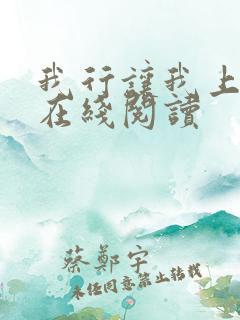 我行讓我上
在綫閱讀
蔡鄭宇
未经同意禁止转载